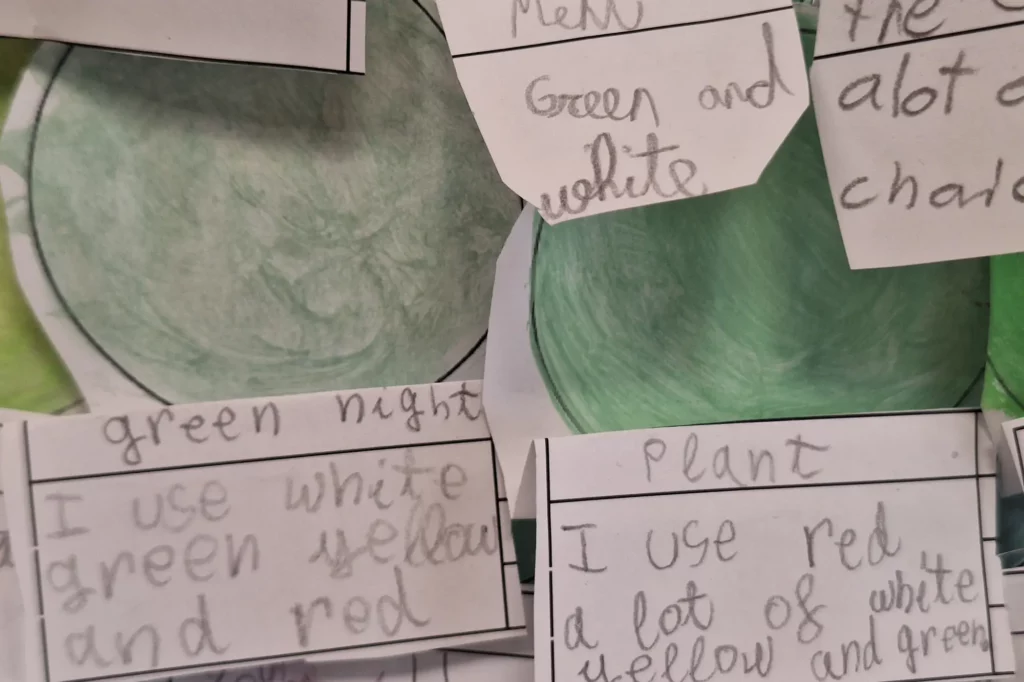 Green and
white
the
alot
green night
I use white
green yellow
and red
Plant
I use red
a lot of white
yellow and green.